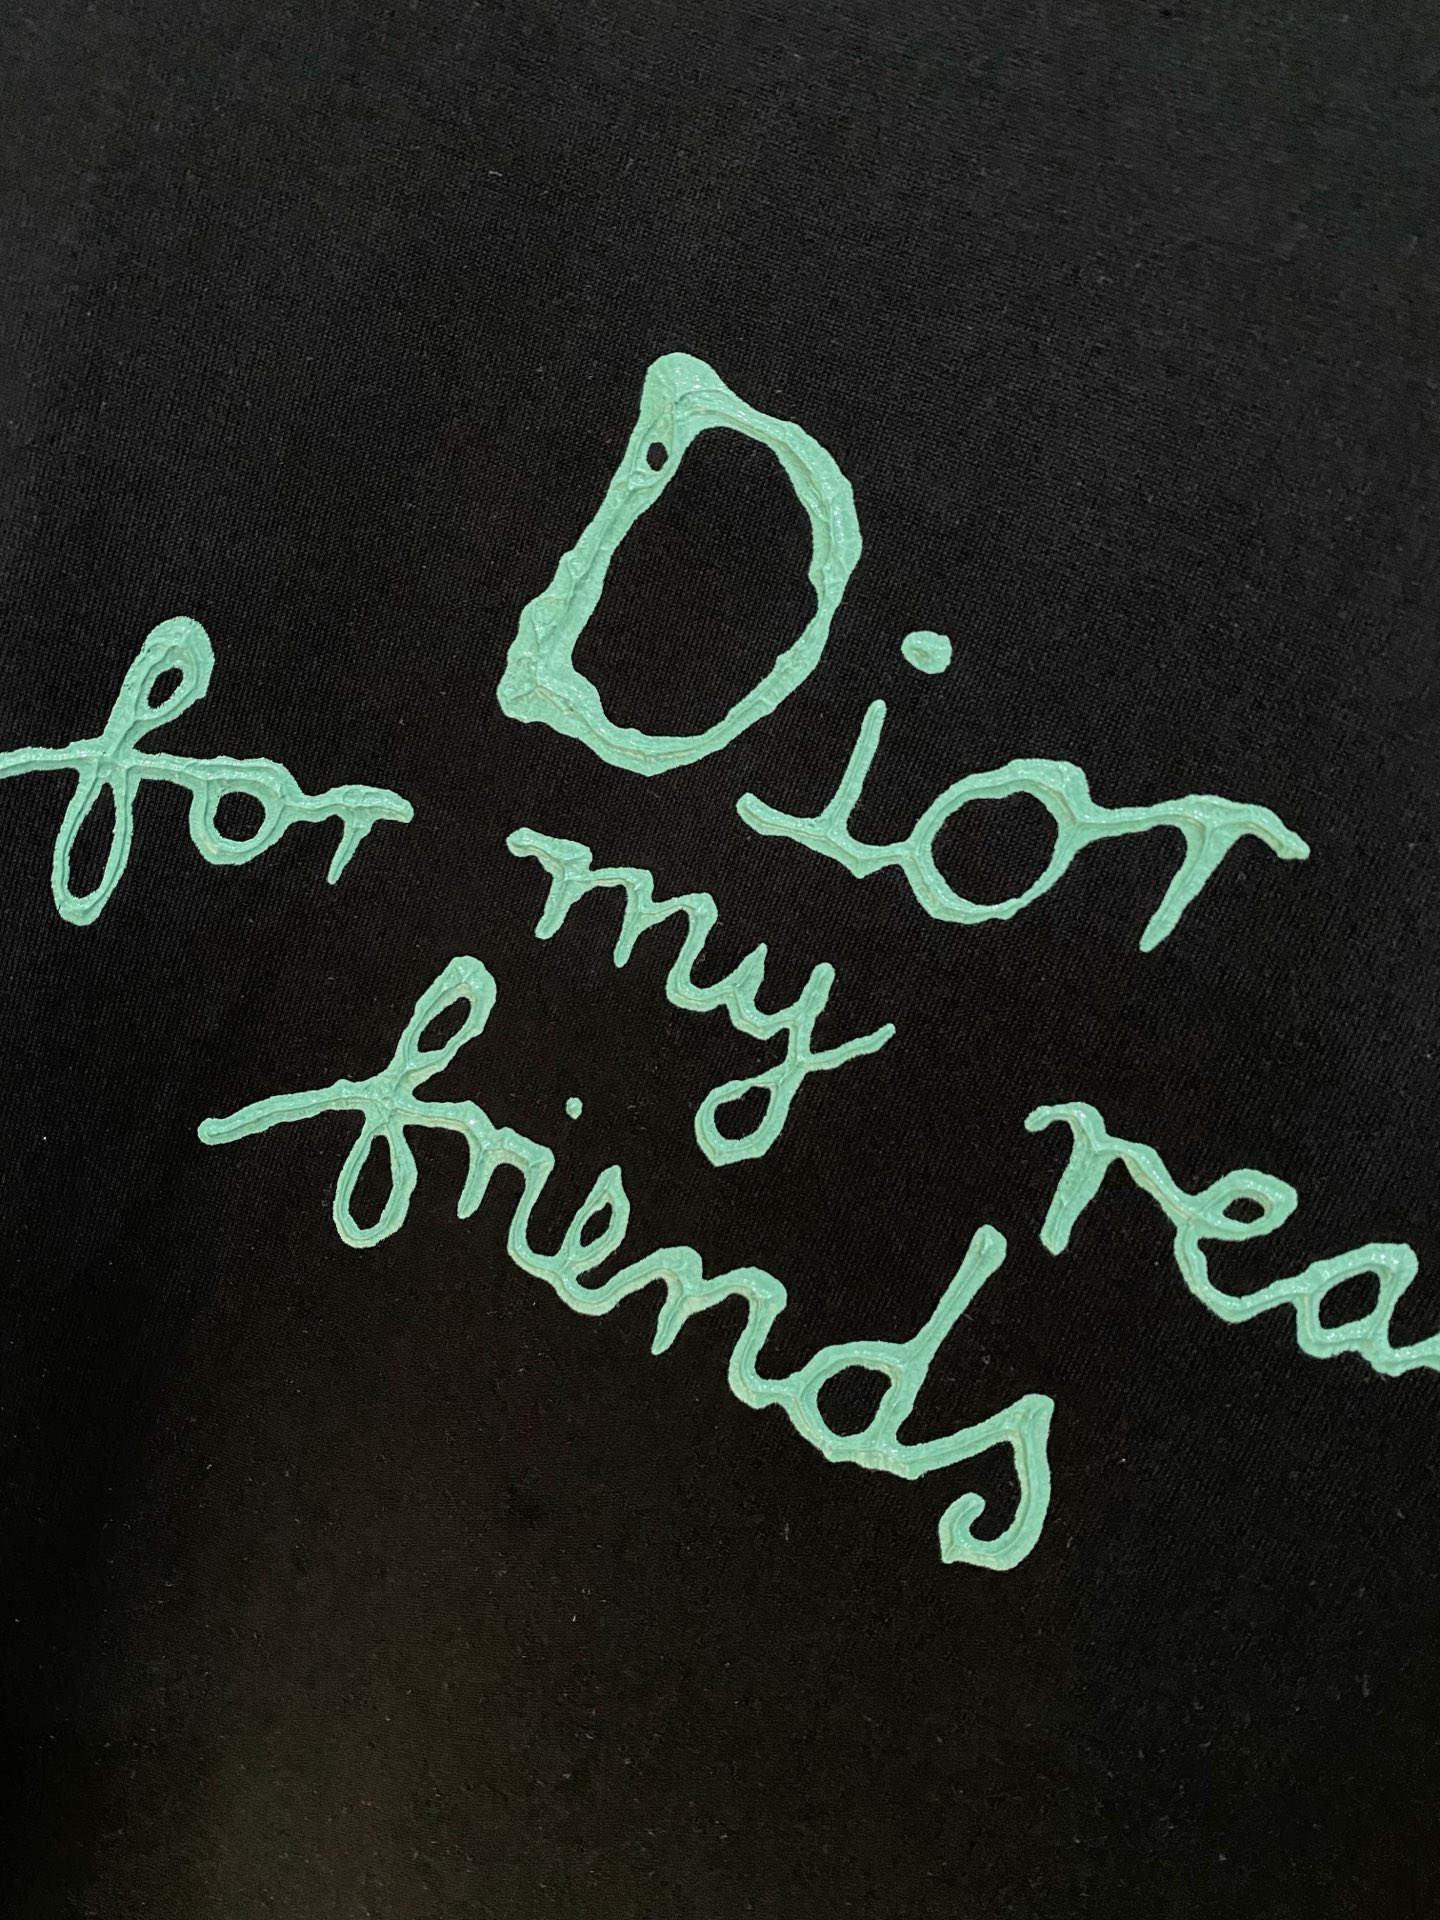 Dior
for my rea
friends